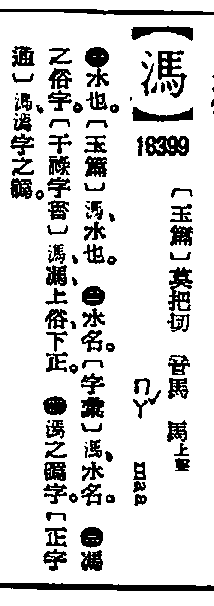 【溤】
18399
〔玉篇〕莫把切 音馬 馬上聲
ㄇㄚˇ maa
㊀水也。〔玉篇〕溤、水也。㊁水名。〔字彙〕溤、水名。㊂馮
之俗字。〔干祿字書〕溤、馮上俗、下正。㊃漹之譌字。〔正字
通〕溤、漹字之譌。